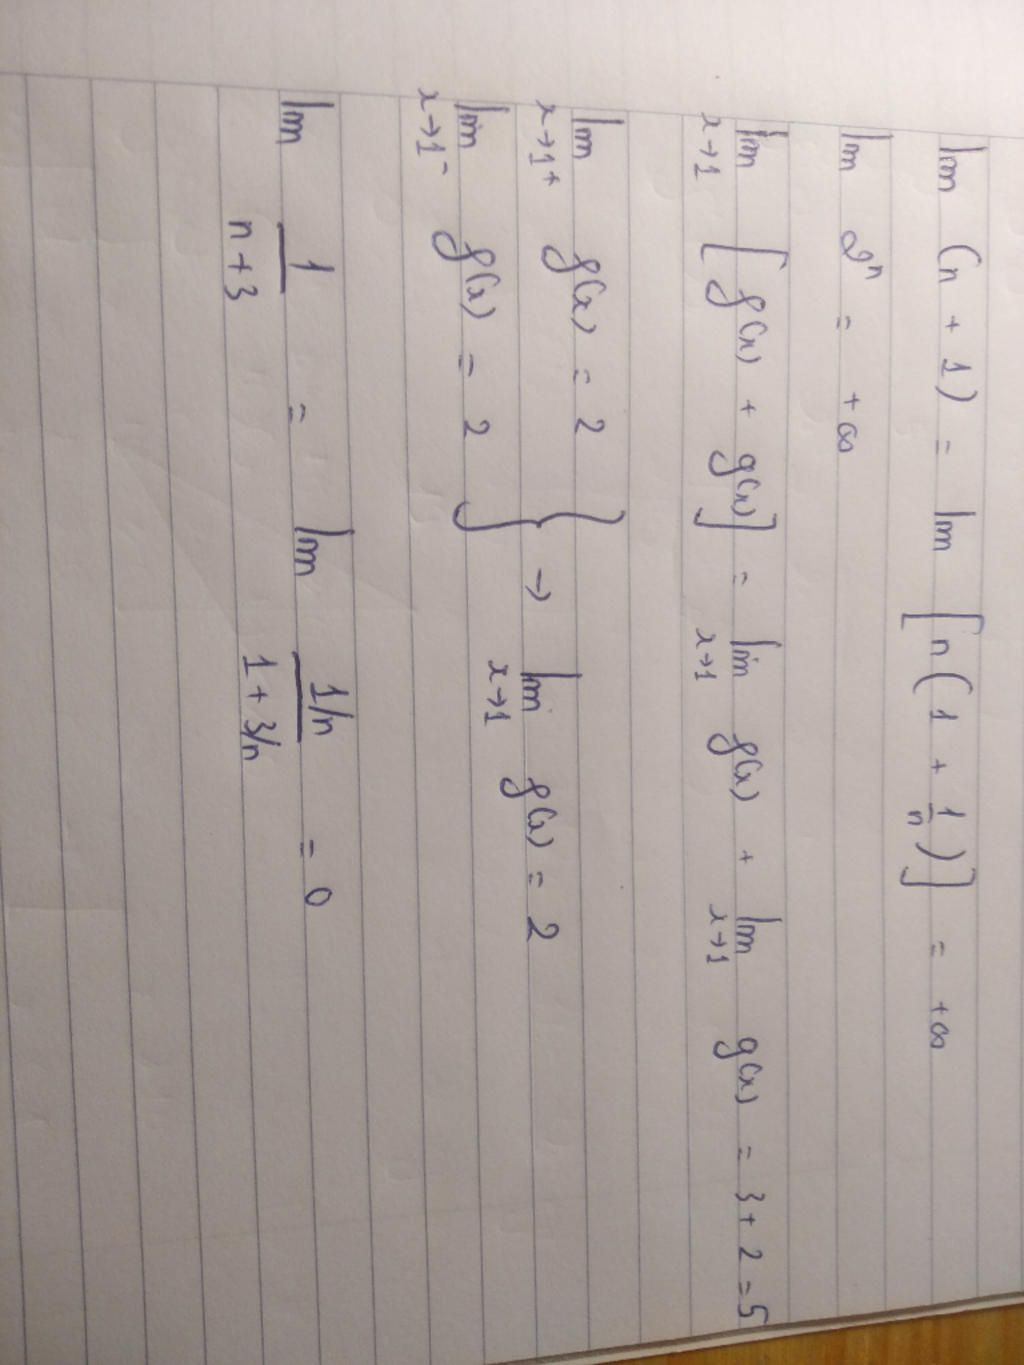 lim (n + 1) = lim [n(1 + 1/n)] = +∞
lim 2ⁿ = +∞
lim x→1 [f(x) + g(x)] = lim x→1 f(x) + lim x→1 g(x) = 3 + 2 = 5
lim x→1⁺ f(x) = 2
lim x→1⁻ f(x) = 2 } → lim x→1 f(x) = 2
lim 1/(n + 3) = lim (1/n)/(1 + 3/n) = 0